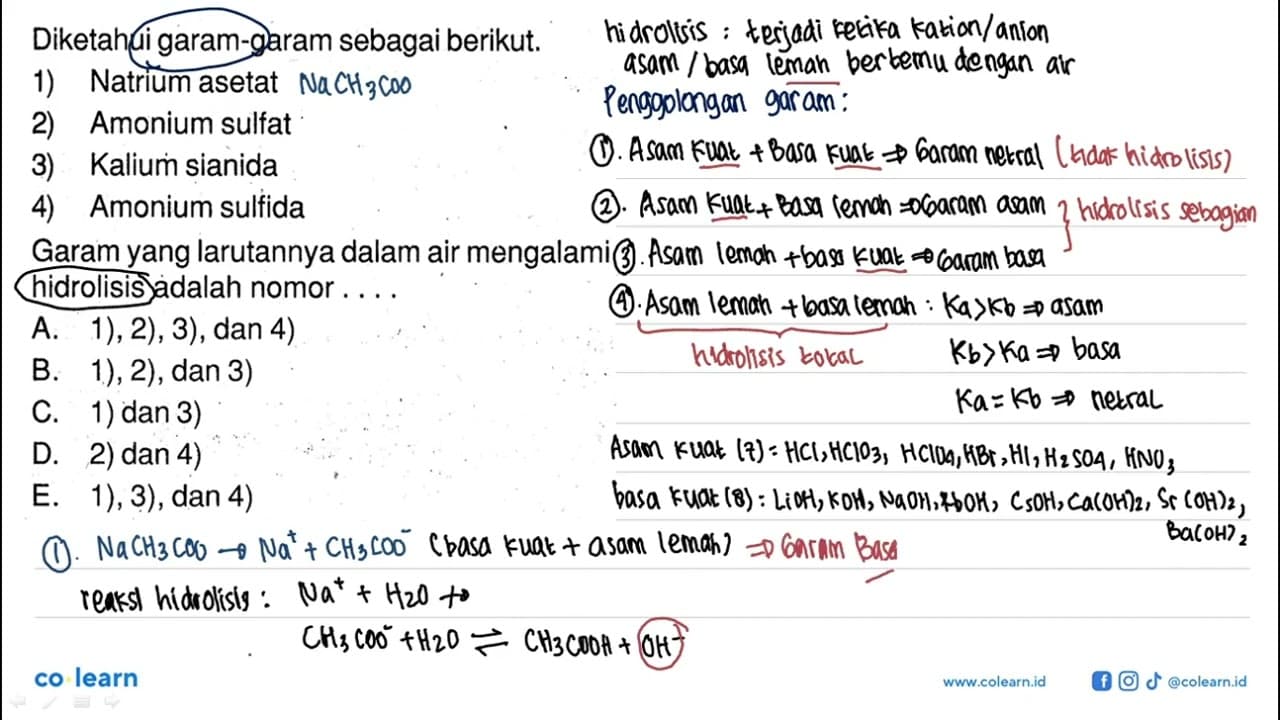 Diketahui garam-garam sebagai berikut.
1) Natrium asetat NaCH3COO
2) Amonium sulfat
3) Kalium sianida
4) Amonium sulfida
Garam yang larutannya dalam air mengalami
hidrolisis adalah nomor . . . .
A. 1), 2), 3), dan 4)
B. 1), 2), dan 3)
C. 1) dan 3)
D. 2) dan 4)
E. 1), 3), dan 4)
hidrolisis : terjadi ketika kation/anion
asam/basa lemah bertemu dengan air
Penggolongan garam :
①. Asam kuat + Basa kuat ⇒ Garam netral (tidak hidrolisis)
②. Asam kuat + Basa lemah ⇒ Garam asam } hidrolisis sebagian
③. Asam lemah + basa kuat ⇒ Garam basa
④. Asam lemah + basa lemah : Ka>Kb ⇒ asam
hidrolisis total Kb>Ka ⇒ basa
Ka = Kb ⇒ netral
Asam kuat (7) = HCl, HClO3, HClO4, HBr, HI, H2SO4, HNO3
basa kuat (8) : LiOH, KOH, NaOH, RbOH, CsOH, Ca(OH)2, Sr(OH)2,
Ba(OH)2
①. NaCH3COO → Na+ + CH3COO- (basa kuat + asam lemah) ⇒ Garam Basa
reaksi hidrolisis : Na+ + H2O ↛
CH3COO- + H2O ⇌ CH3COOH + OH-
co learn
www.colearn.id
@colearn.id